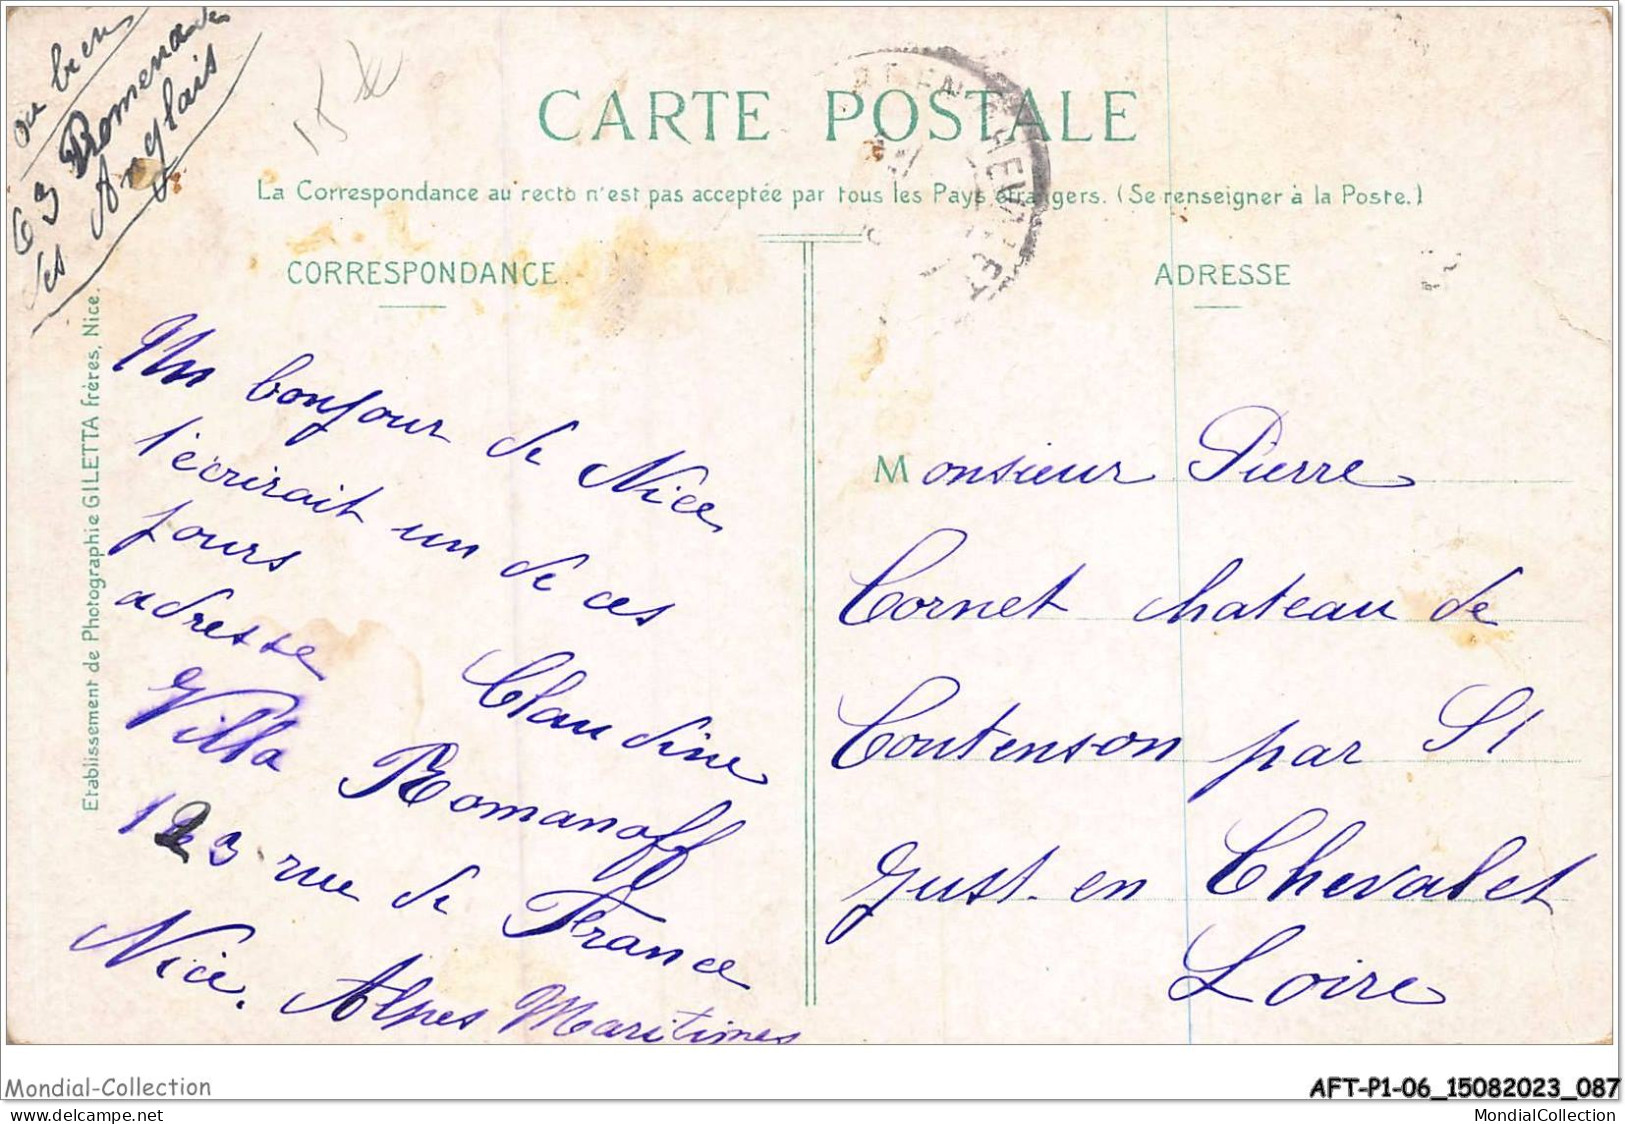 ou bien
63 Promenade
des Anglais
15
CARTE POSTALE
La Correspondance au recto n'est pas acceptée par tous les Pays étrangers. (Se renseigner à la Poste.)
CORRESPONDANCE
ADRESSE
Etablissement de Photographie GILETTA frères, Nice.
Un bonjour de Nice
t'écrirait un de ces
jours
Claudine
adresse
Villa Romanoff
123 rue de France
Nice. Alpes Maritimes
Monsieur Pierre
Cornet chateau de
Contenson par St
Just. en Chevalet
Loire
ST EN CHEVALET
Mondial-Collection
AFT-P1-06_15082023_087
MondialCollection
MondialCollection